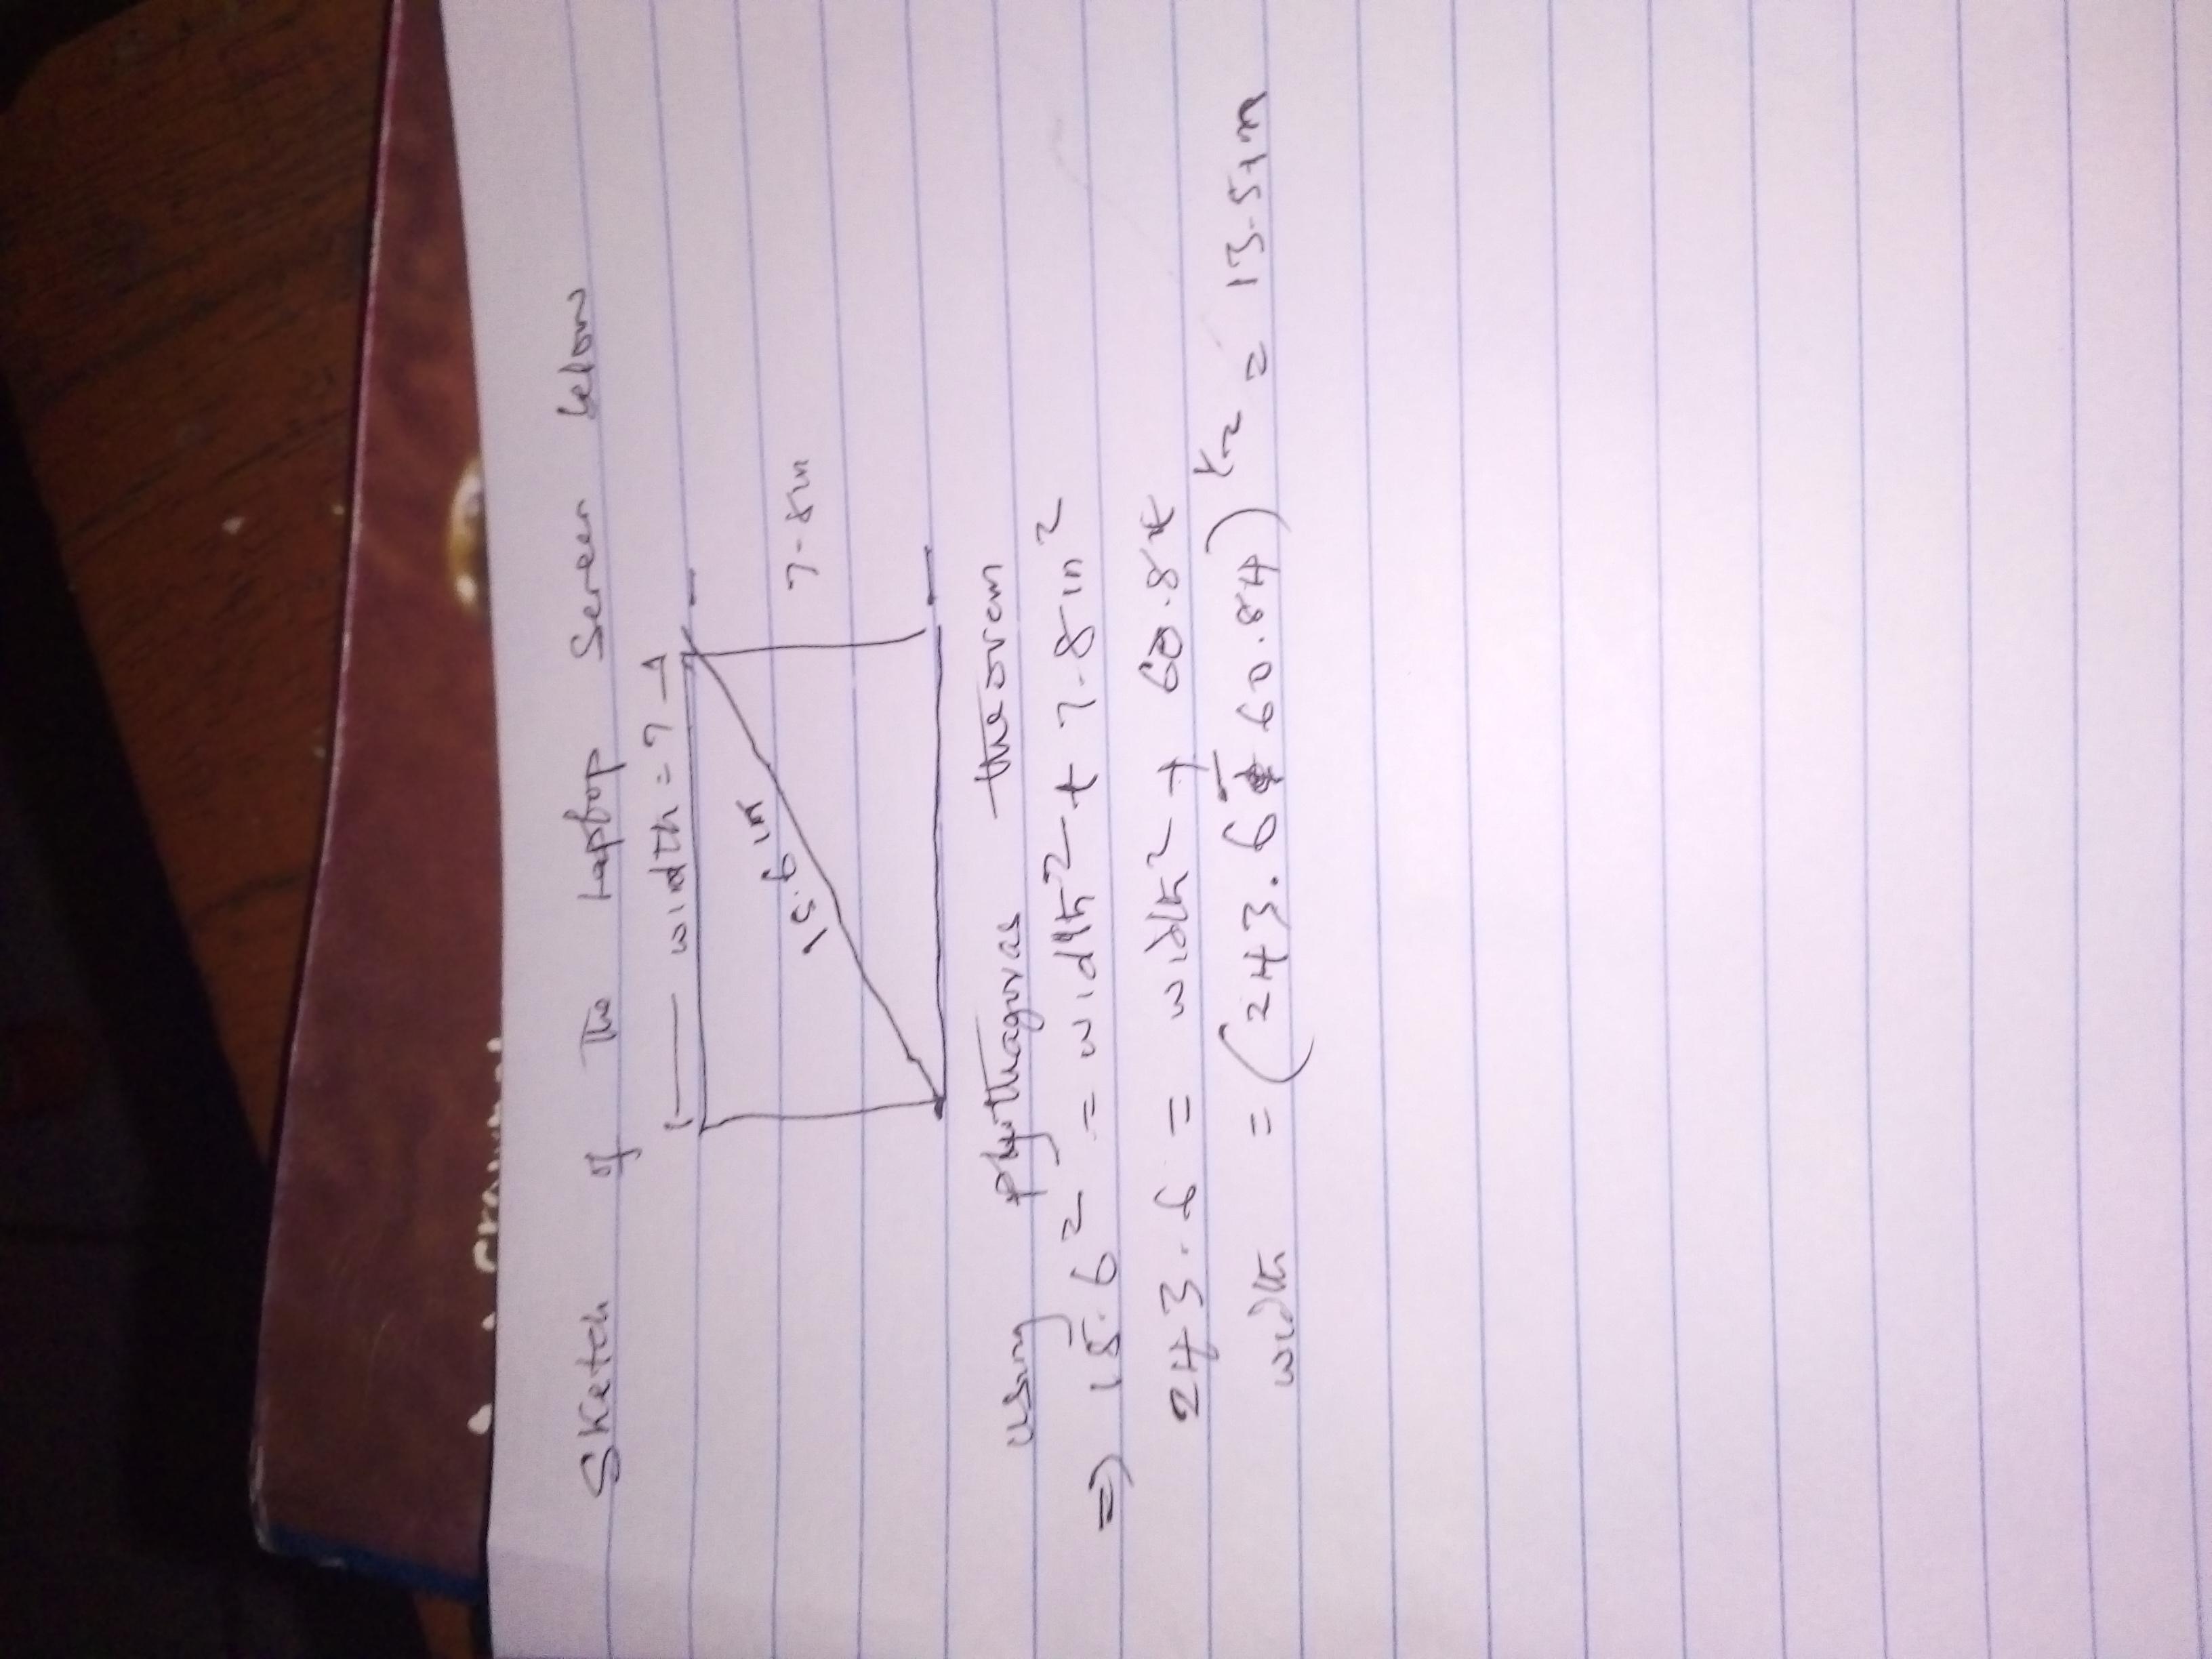 Sketch of The laptop Screen below
width = ?
15.6 in
7.8in
using phythagoras theorem
⇒ 15.6² = width² + 7.8in²
243.6 = width² + 60.8
width = (243.6 - 60.84)^½ = 13.5in